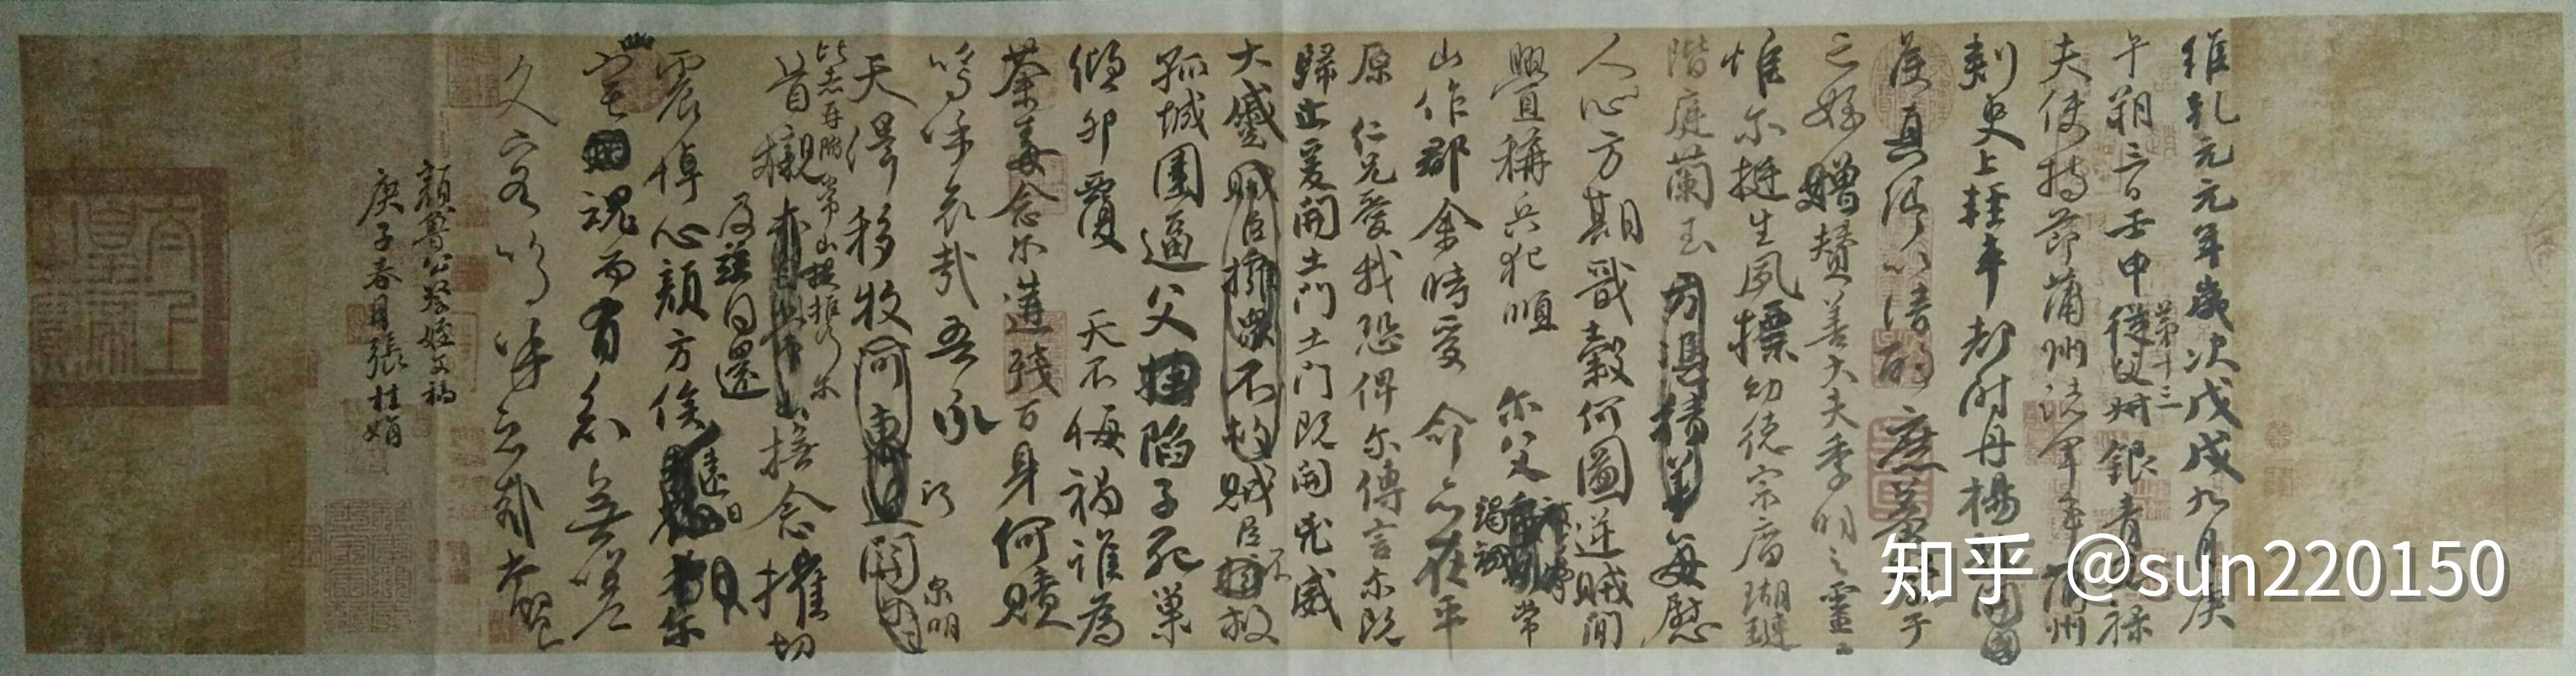 維乾元元年歲次戊戌九月庚
午朔三日壬申從父
第十三
叔銀青
祿
夫使持節蒲州諸軍事蒲州
刺史上輕車都尉丹楊
國
侯真卿以清酌庶羞
于
亡姪贈贊善大夫季明之靈
惟爾挺生夙標幼德宗廟瑚璉
階庭蘭玉
每慰
人心方期戩穀何圖逆賊閒
舋稱兵犯順
爾父
竭誠
常
山作郡余時受
命亦在平
原
仁兄愛我恐俾爾傳言爾既
歸止爰開土門土門既開兇威
大蹙
賊臣
不
救
孤城圍逼父
陷子死巢
傾卵覆
天不悔禍誰為
荼毒念爾遘殘百身何贖
嗚呼哀哉吾承
天澤移牧河東近
關
泉明
比者再陷常山
攜
爾
首櫬
及茲同還
撫念摧切
震悼心顏方俟
遠日
爾
魂而有知無嗟
久客嗚呼哀哉尚饗
顏魯公祭姪文稿
庚子春月張桂娟
知乎 @sun220150